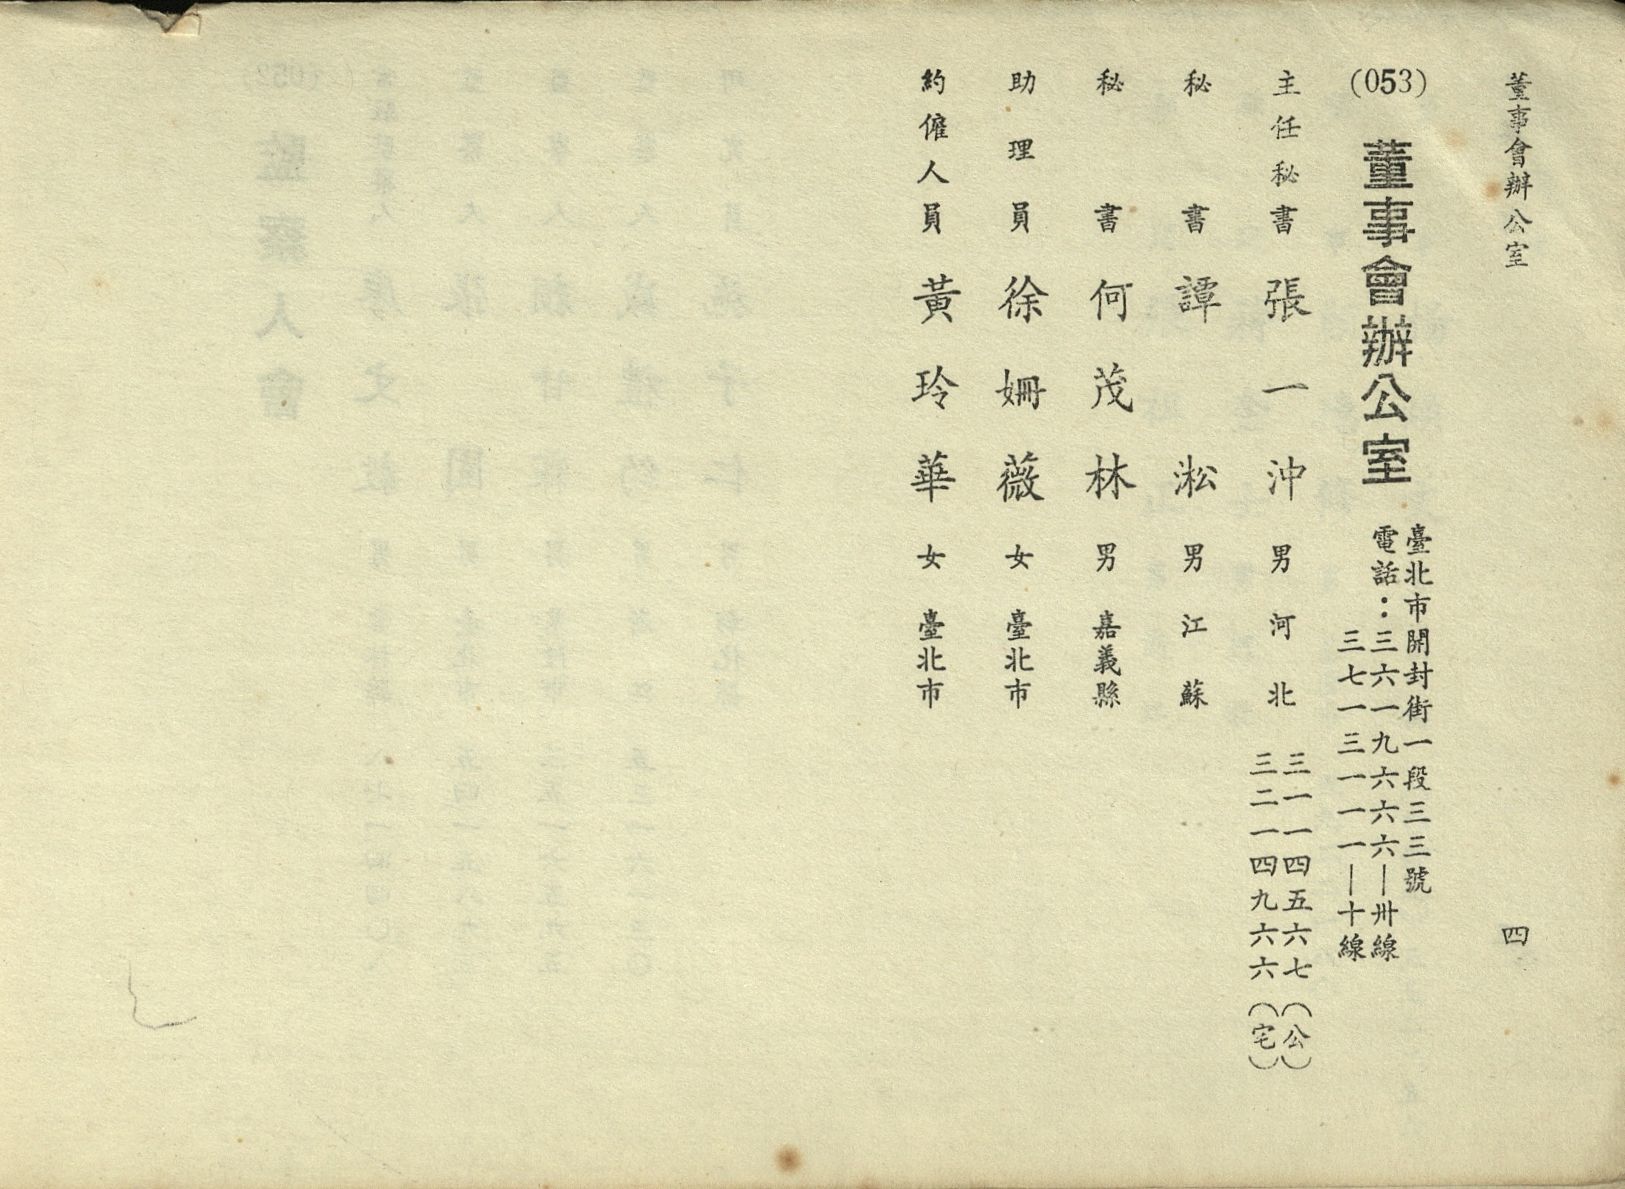 董事會辦公室
四
(053)
董事會辦公室
臺北市開封街一段三三號
電話：三六一九六六六—卅線
三七一三一一一—十線
主任秘書 張一沖 男 河北
三一一四五六七（公）
三二一四九六六（宅）
秘書 譚淞 男 江蘇
秘書 何茂林 男 嘉義縣
助理員 徐姍薇 女 臺北市
約僱人員 黃玲華 女 臺北市